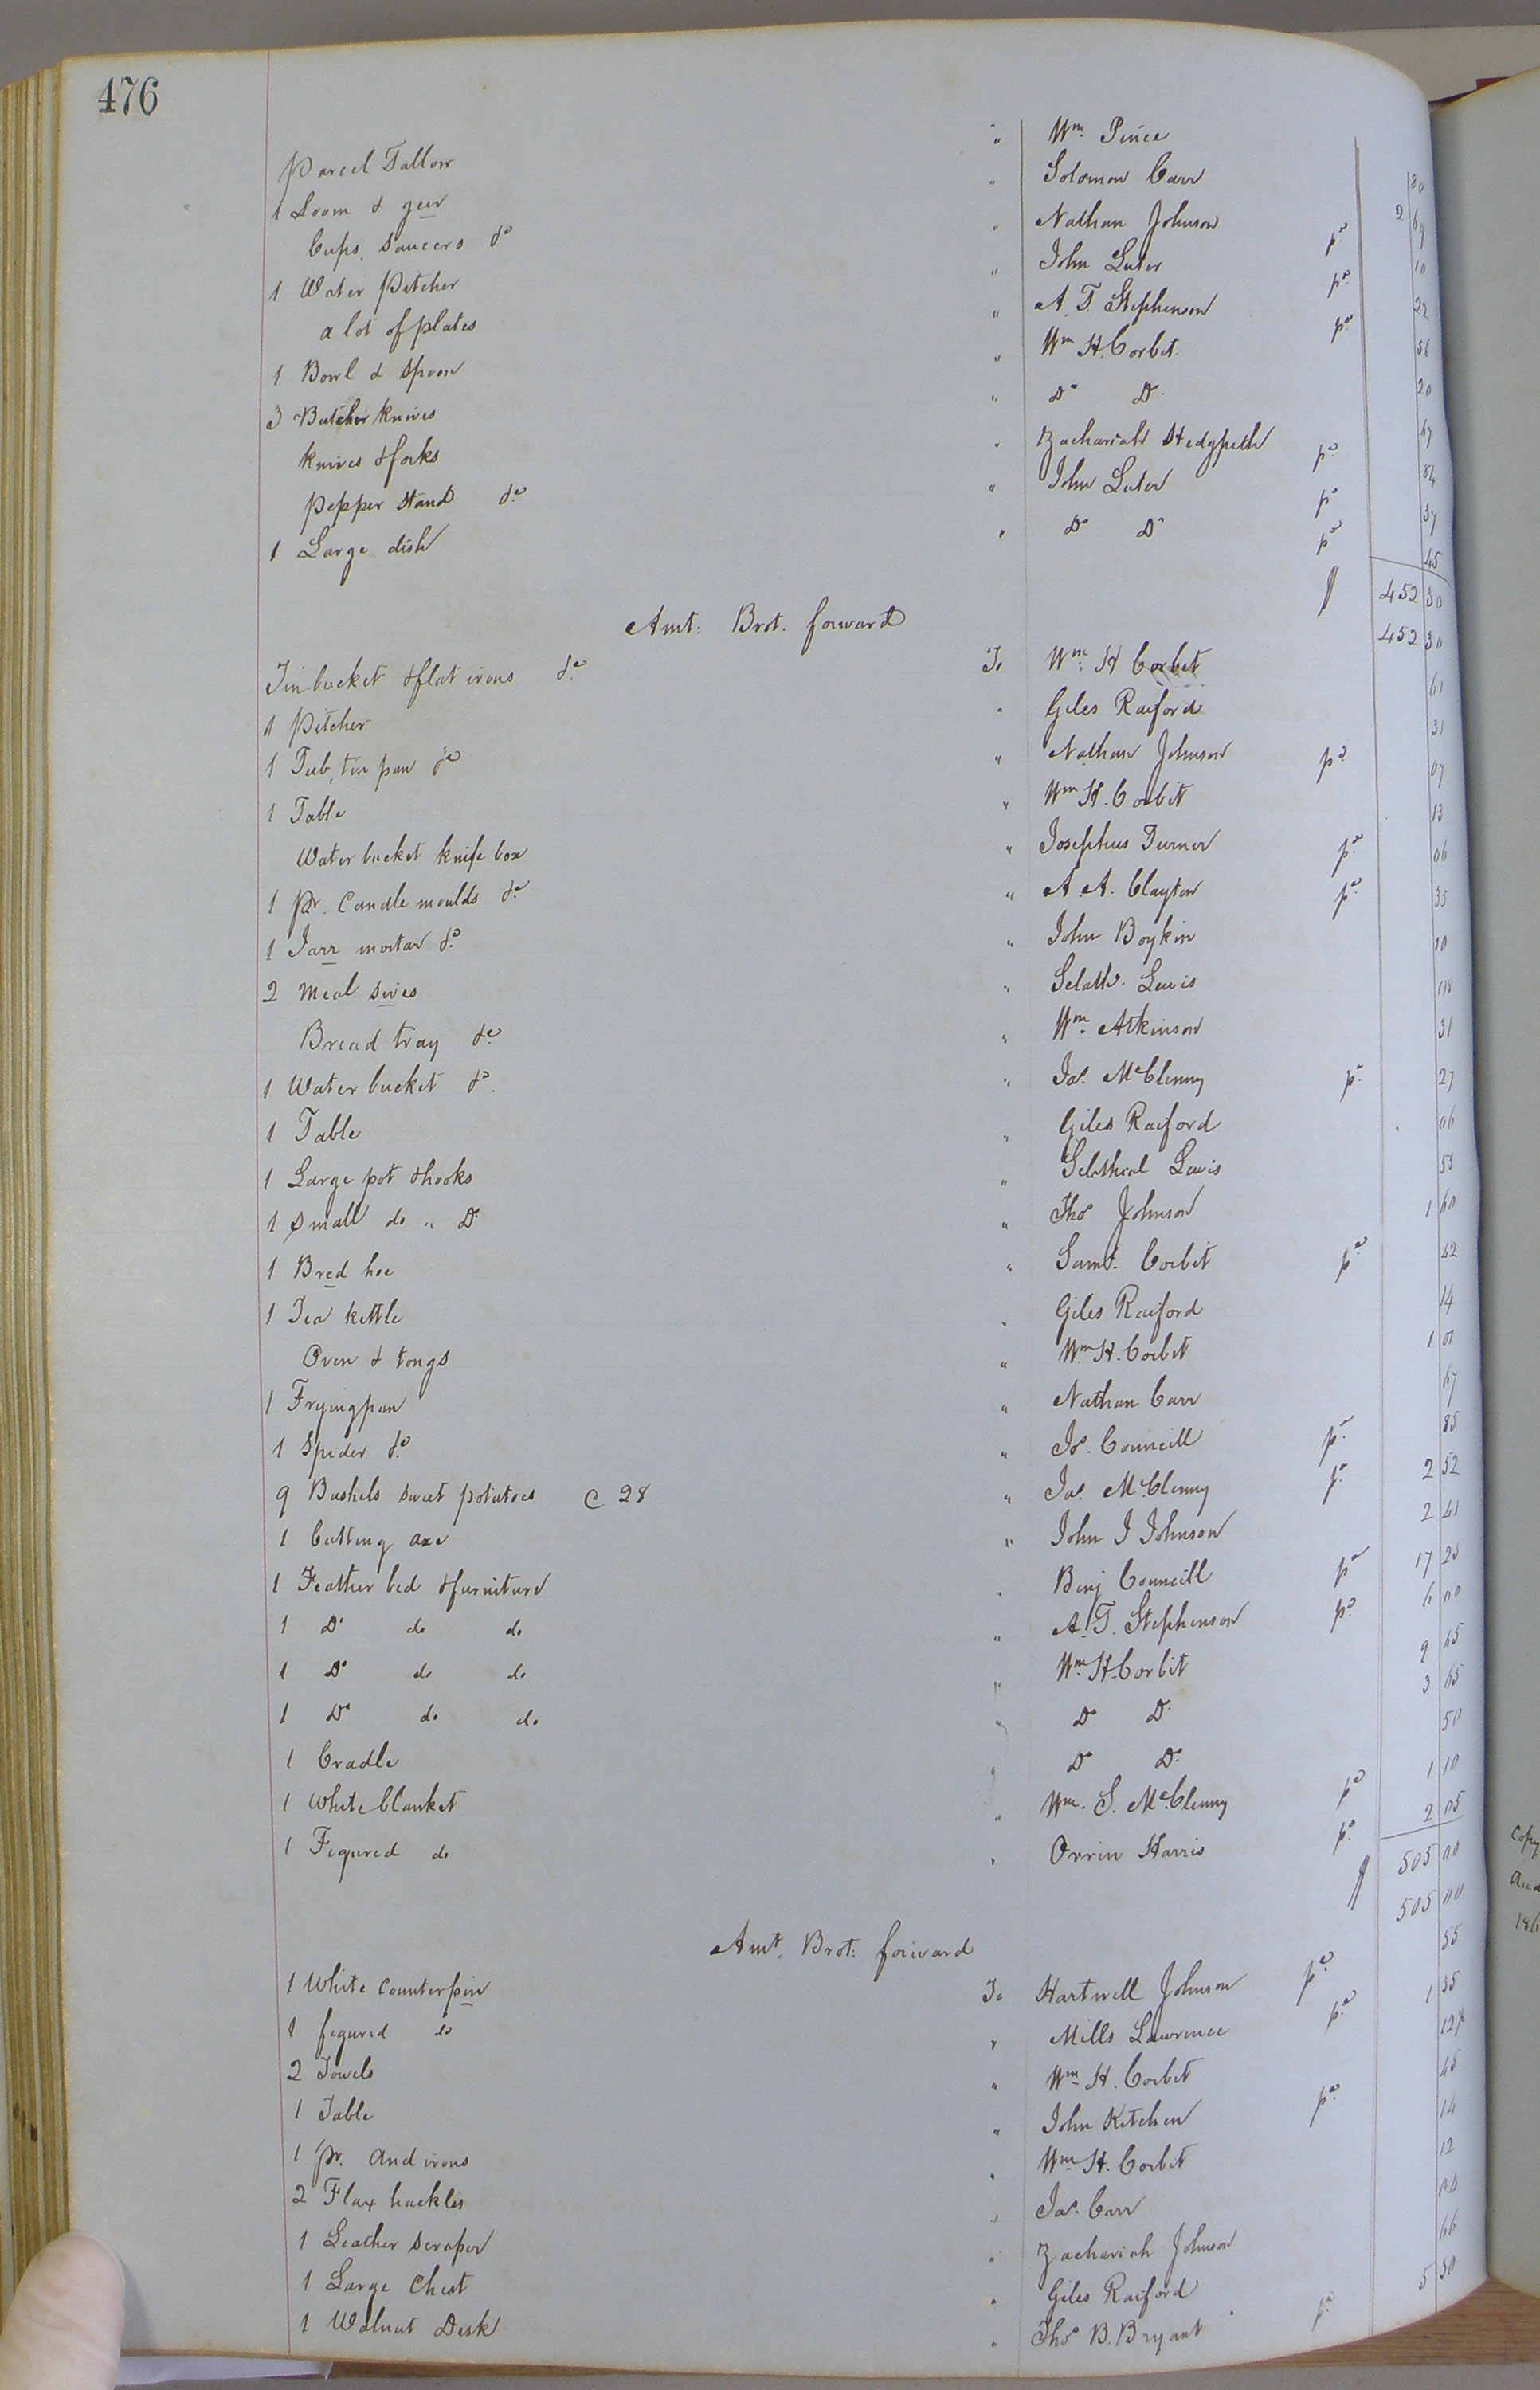 476
Parcel Tallow " Wm Pince 80
1 Loom & geer " Solomon Carr 2 69
Cups, Saucers &c " Nathan Johnson pd 10
1 Water Pitcher " John Luter pd 22
a lot of plates " A. T. Stephenson pd 56
1 Bowl & Spoon " Wm H. Corbit 20
3 Butcher knives " Do Do 67
knives & forks " Zachariah Hedgpeth pd 84
Pepper Stand &c " John Luter pd 37
1 Large dish " Do Do pd 45
452 30
Amt: Brot. forward 452 30
Tin bucket & flat irons &c To Wm H Corbit 61
1 Pitcher " Giles Raiford 31
1 Tub, tin pan &c " Nathan Johnson pd 07
1 Table " Wm H. Corbit 13
Water bucket knife box " Josephus Turner pd 06
1 pr. Candle moulds &c " A. A. Clayton pd 35
1 Jarr mortar &c " John Boykin 10
2 Meal sives " Selath. Lewis 118
Bread tray &c " Wm Atkinson 31
1 Water bucket &c " Jas. McClenny pd 27
1 Table " Giles Raiford 06
1 Large pot & hooks " Selatheal Lewis 53
1 small do " Do " Thos Johnson 1 60
1 Bred hoe " Saml. Corbit pd 42
1 Tea kettle " Giles Raiford 14
Oven & tongs " Wm H. Corbit 1 01
1 Fryingpan " Nathan Carr 67
1 Spider &c " Js. Councill pd 85
9 Bushels sweet potatoes C 28 " Jas. McClenny pd 2 52
1 Cutting axe " John J Johnson 2 41
1 Feather bed & furniture " Benj Councill pd 17 25
1 Do do do " A. T. Stephenson pd 6 00
1 Do do do " Wm H. Corbit 9 65
1 Do do do " Do Do 3 65
1 Cradle " Do Do 50
1 White blanket " Wm. S. McClenny pd 1 10
1 Figured do " Orrin Harris pd 2 05
505 00
Amt. Brot: forward 505 00
1 White Counterpin To Hartwell Johnson pd 55
1 figured do " Mills Lawrence pd 1 35
2 Towels " Wm H. Corbit 12½
1 Table " John Kitchen pd 45
1 pr. And irons " Wm H. Corbit 14
2 Flax hackles " Jas. Carr 12
1 Leather scraper " Zachariah Johnson 06
1 Large Chest " Giles Raiford 66
1 Walnut Desk " Thos B. Bryant pd 5 50
Copy